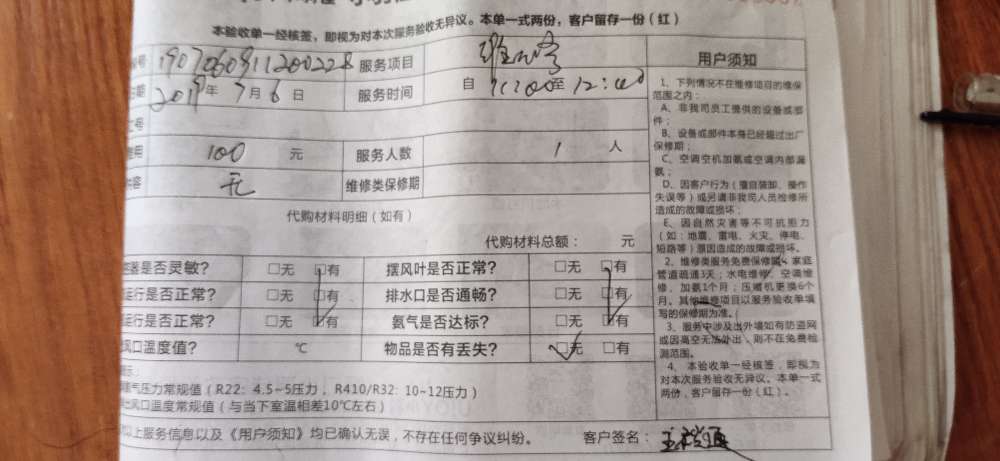 本验收单一经核签，即视为对本次服务验收无异议。本单一式两份，客户留存一份（红）
号 1907060911200228 服务项目
用户须知
日期 2019年7月6日 服务时间 自 11:00至12:00
工号
费用 100 元 服务人数 1 人
内容 无 维修类保修期
代购材料明细（如有）
代购材料总额： 元
器是否灵敏？ □无 □有 摆风叶是否正常？ □无 □有
运行是否正常？ □无 □有 排水口是否通畅？ □无 □有
运行是否正常？ □无 □有 氨气是否达标？ □无 □有
风口温度值？ ℃ 物品是否有丢失？ □无 □有
氨气压力常规值（R22：4.5~5压力，R410/R32：10~12压力）
出风口温度常规值（与当下室温相差10℃左右）
以上服务信息以及《用户须知》均已确认无误，不存在任何争议纠纷。 客户签名：
1、下列情况不在维修项目的维保
范围之内：
A、非我司员工提供的设备或部
件；
B、设备或部件本身已经超过出厂
保修期；
C、空调空机加氨或空调内部漏
氨；
D、因客户行为（擅自装卸、操作
失误等）或另请非我司人员检修所
造成的故障或损坏；
E、因自然灾害等不可抗拒力
（如：地震、雷电、火灾、停电、
短路等）原因造成的故障或损坏。
2、维修类服务免费保修期：家庭
管道疏通3天；水电维修、空调维
修、加氨1个月；压缩机更换6个
月。其他维修项目以服务验收单填
写的保修期为准。
3、服务中涉及出外墙如有防盗网
或因高空无法外出，则不在免费检
测范围。
4、本验收单一经核签，即视为
对本次服务验收无异议。本单一式
两份，客户留存一份（红）。